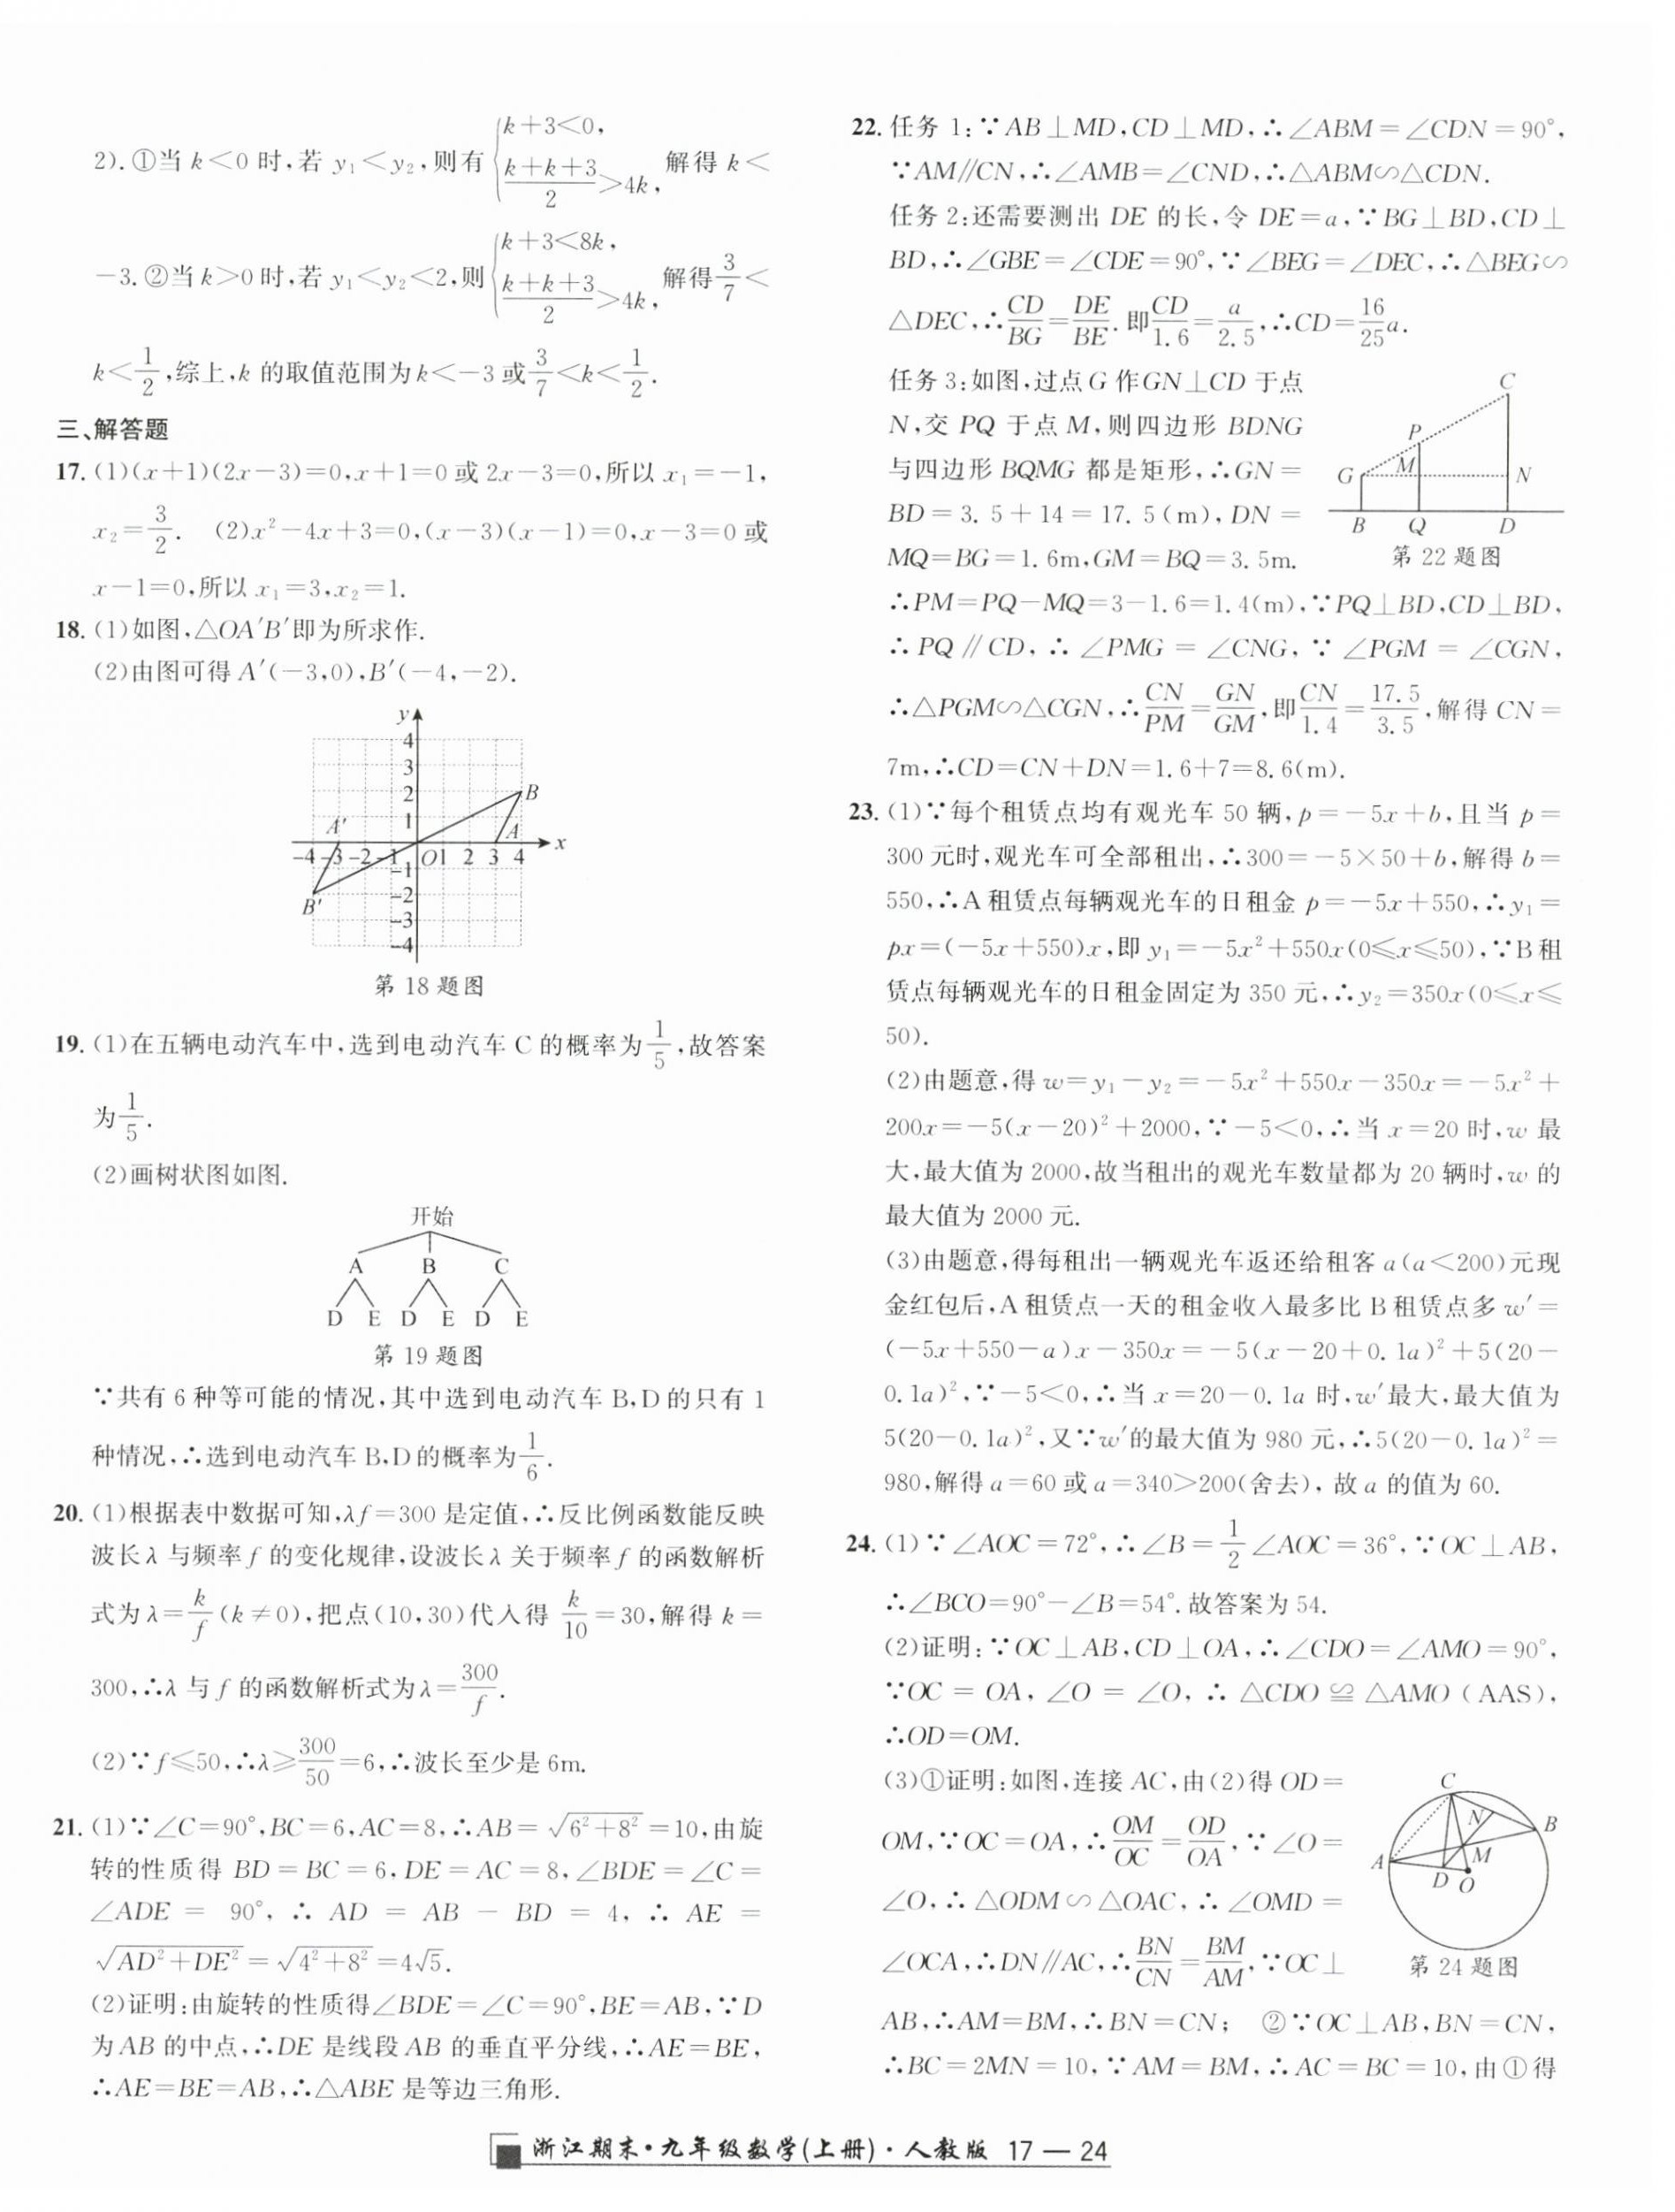 2).①当 k<0 时,若 y₁<y₂,则有 {k+3<0, (k+k+3)/2>4k, 解得 k<
-3.②当 k>0 时,若 y₁<y₂<2,则 {k+3<8k, (k+k+3)/2>4k, 解得 3/7<
k<1/2,综上,k 的取值范围为 k<-3 或 3/7<k<1/2.
三、解答题
17. (1)(x+1)(2x-3)=0,x+1=0 或 2x-3=0,所以 x₁=-1,
x₂=3/2. (2)x²-4x+3=0,(x-3)(x-1)=0,x-3=0 或
x-1=0,所以 x₁=3,x₂=1.
18. (1)如图,△OA′B′即为所求作.
(2)由图可得 A′(-3,0),B′(-4,-2).
y
4
3
2
B
A′
1
A
x
-4 -3 -2 -1 O 1 2 3 4
-1
-2
B′
-3
-4
第 18 题图
19. (1)在五辆电动汽车中,选到电动汽车 C 的概率为 1/5,故答案
为 1/5.
(2)画树状图如图.
开始
A B C
D E D E D E
第 19 题图
∵共有 6 种等可能的情况,其中选到电动汽车 B,D 的只有 1
种情况,∴选到电动汽车 B,D 的概率为 1/6.
20. (1)根据表中数据可知,λf=300 是定值,∴反比例函数能反映
波长 λ 与频率 f 的变化规律,设波长 λ 关于频率 f 的函数解析
式为 λ=k/f(k≠0),把点(10,30)代入得 k/10=30,解得 k=
300,∴λ 与 f 的函数解析式为 λ=300/f.
(2)∵f≤50,∴λ≥300/50=6,∴波长至少是 6m.
21. (1)∵∠C=90°,BC=6,AC=8,∴AB=√(6²+8²)=10,由旋
转的性质得 BD=BC=6,DE=AC=8,∠BDE=∠C=
∠ADE = 90°, ∴ AD = AB - BD = 4, ∴ AE =
√(AD²+DE²)=√(4²+8²)=4√5.
(2)证明:由旋转的性质得∠BDE=∠C=90°,BE=AB,∵D
为 AB 的中点,∴DE 是线段 AB 的垂直平分线,∴AE=BE,
∴AE=BE=AB,∴△ABE 是等边三角形.
22. 任务 1:∵AB⊥MD,CD⊥MD,∴∠ABM=∠CDN=90°,
∵AM∥CN,∴∠AMB=∠CND,∴△ABM∽△CDN.
任务 2:还需要测出 DE 的长,令 DE=a,∵BG⊥BD,CD⊥
BD,∴∠GBE=∠CDE=90°,∵∠BEG=∠DEC,∴△BEG∽
△DEC,∴CD/BG=DE/BE.即CD/1.6=a/2.5,∴CD=16/25a.
任务 3:如图,过点 G 作 GN⊥CD 于点
N,交 PQ 于点 M,则四边形 BDNG
与四边形 BQMG 都是矩形,∴GN=
BD=3.5+14=17.5(m),DN=
MQ=BG=1.6m,GM=BQ=3.5m.
C
P
G M N
B Q D
第 22 题图
∴PM=PQ-MQ=3-1.6=1.4(m),∵PQ⊥BD,CD⊥BD,
∴PQ∥CD,∴∠PMG=∠CNG,∵∠PGM=∠CGN,
∴△PGM∽△CGN,∴CN/PM=GN/GM,即CN/1.4=17.5/3.5,解得 CN=
7m,∴CD=CN+DN=1.6+7=8.6(m).
23. (1)∵每个租赁点均有观光车 50 辆,p=-5x+b,且当 p=
300 元时,观光车可全部租出,∴300=-5×50+b,解得 b=
550,∴A 租赁点每辆观光车的日租金 p=-5x+550,∴y₁=
px=(-5x+550)x,即 y₁=-5x²+550x(0≤x≤50),∵B 租
赁点每辆观光车的日租金固定为 350 元,∴y₂=350x(0≤x≤
50).
(2)由题意,得 w=y₁-y₂=-5x²+550x-350x=-5x²+
200x=-5(x-20)²+2000,∵-5<0,∴当 x=20 时,w 最
大,最大值为 2000,故当租出的观光车数量都为 20 辆时,w 的
最大值为 2000 元.
(3)由题意,得每租出一辆观光车返还给租客 a(a<200)元现
金红包后,A 租赁点一天的租金收入最多比 B 租赁点多 w′=
(-5x+550-a)x-350x=-5(x-20+0.1a)²+5(20-
0.1a)²,∵-5<0,∴当 x=20-0.1a 时,w′最大,最大值为
5(20-0.1a)²,又∵w′的最大值为 980 元,∴5(20-0.1a)²=
980,解得 a=60 或 a=340>200(舍去),故 a 的值为 60.
24. (1)∵∠AOC=72°,∴∠B=1/2∠AOC=36°,∵OC⊥AB,
∴∠BCO=90°-∠B=54°.故答案为 54.
(2)证明:∵OC⊥AB,CD⊥OA,∴∠CDO=∠AMO=90°,
∵OC=OA,∠O=∠O,∴△CDO≌△AMO(AAS),
∴OD=OM.
(3)①证明:如图,连接 AC,由(2)得 OD=
OM,∵OC=OA,∴OM/OC=OD/OA,∵∠O=
∠O,∴△ODM∽△OAC,∴∠OMD=
∠OCA,∴DN∥AC,∴BN/CN=BM/AM,∵OC⊥
C
N B
A M
D O
第 24 题图
AB,∴AM=BM,∴BN=CN; ②∵OC⊥AB,BN=CN,
∴BC=2MN=10,∵AM=BM,∴AC=BC=10,由①得
浙江期末·九年级数学(上册)·人教版 17 — 24